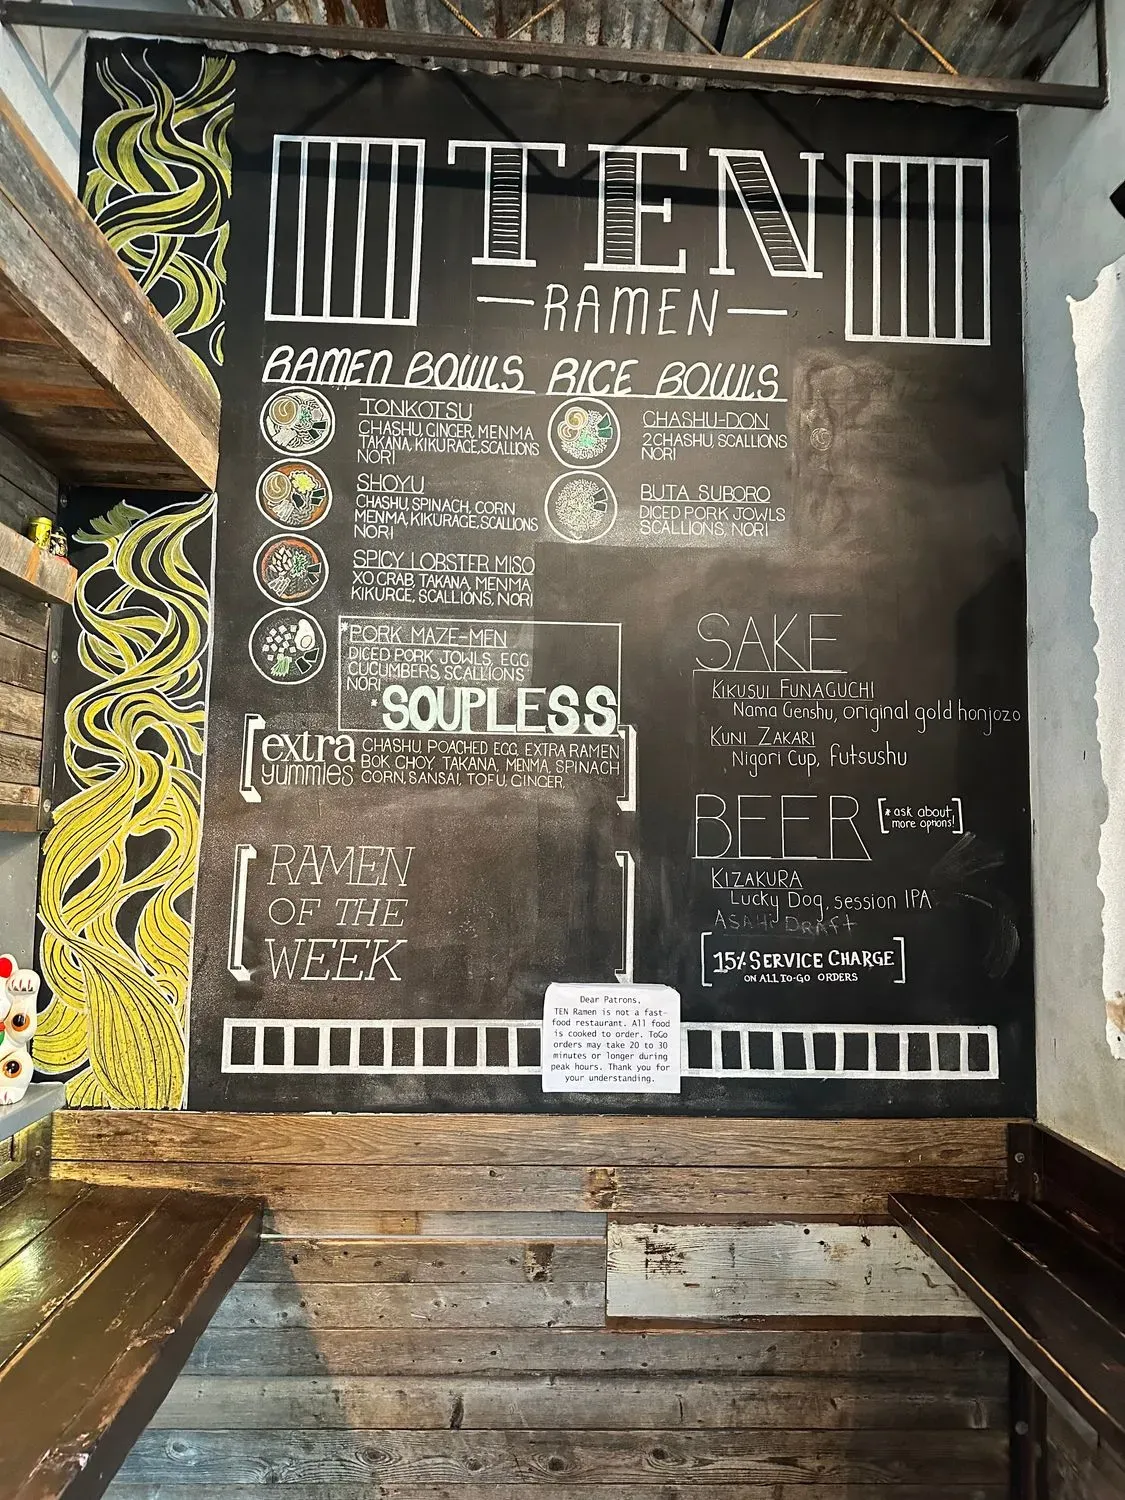 TEN
RAMEN
RAMEN BOWLS
TONKOTSU
CHASHU, GINGER, MENMA
TAKANA, KIKURAGE, SCALLIONS
NORI
SHOYU
CHASHU, SPINACH, CORN
MENMA, KIKURAGE, SCALLIONS
NORI
SPICY LOBSTER MISO
XO CRAB, TAKANA, MENMA
KIKURGE, SCALLIONS, NORI
*PORK MAZE-MEN
DICED PORK JOWLS, EGG
CUCUMBERS, SCALLIONS
NORI
*SOUPLESS
RICE BOWLS
CHASHU-DON
2 CHASHU, SCALLIONS
NORI
BUTA SUBORO
DICED PORK JOWLS
SCALLIONS, NORI
extra
yummies
CHASHU, POACHED EGG, EXTRA RAMEN
BOK CHOY, TAKANA, MENMA, SPINACH
CORN, SANSAI, TOFU, GINGER,
RAMEN
OF THE
WEEK
SAKE
KIKUSUI FUNAGUCHI
Nama Genshu, original gold honjozo
KUNI ZAKARI
Nigori Cup, futsushu
BEER
*ask about
more options!
KIZAKURA
Lucky Dog, session IPA
ASAHI DRAFT
15% SERVICE CHARGE
ON ALL TO-GO ORDERS
Dear Patrons,
TEN Ramen is not a fast-
food restaurant. All food
is cooked to order. ToGo
orders may take 20 to 30
minutes or longer during
peak hours. Thank you for
your understanding.